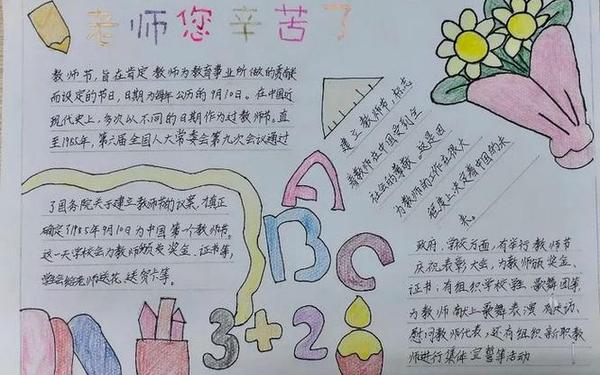 老师您辛苦了
教师节，旨在肯定教师为教育事业所做的贡献
而设定的节日，日期为每年公历的9月10日。在中国近
现代史上，多次以不同的日期作为过教师节。直
至1985年，第六届全国人大常委会第九次会议通过
了国务院关于建立教师节的议案，才真正
确定了1985年9月10日为中国第一个教师节。
这一天学校会为教师颁发奖金、证书等，
学生会给老师送花、送贺卡等。
建立教师节，标志
着教师在中国受到全
社会的尊敬。这是因
为教师的工作在很大
程度上决定着中国的未
来。
A
B
C
3+2
政府、学校方面，有举行教师节
庆祝表彰大会，为教师颁奖金、
证书；有组织学校
歌舞团等
为教师献上歌舞表演
慰问教师代表，还有组织新职教
师进行集体宣誓等活动